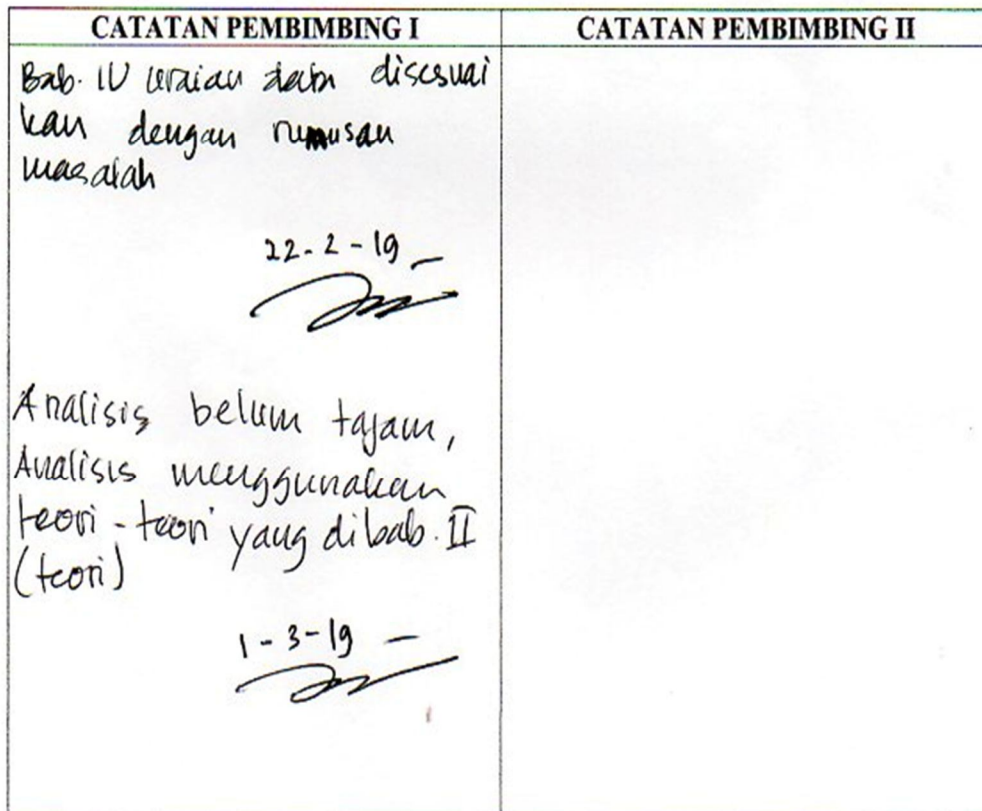 CATATAN PEMBIMBING I
CATATAN PEMBIMBING II
Bab. IV uraian data disesuai
kan dengan rumusan
masalah
22-2-19
Analisis belum tajam,
Analisis menggunakan
teori-teori yang dibab. II
(teori)
1-3-19